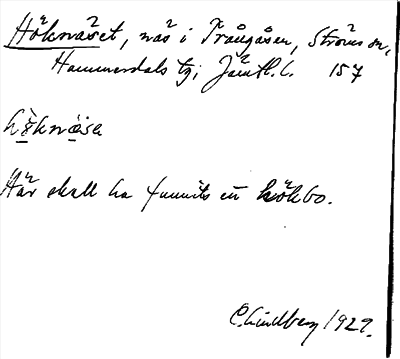 Höknäset, näs i Trångåsen, Ströms sn,
Hammerdals tg; Jämtl. l. 157
hö̀knäse
Här skall ha funnits en hökbo.
C. Lindberg 1929.